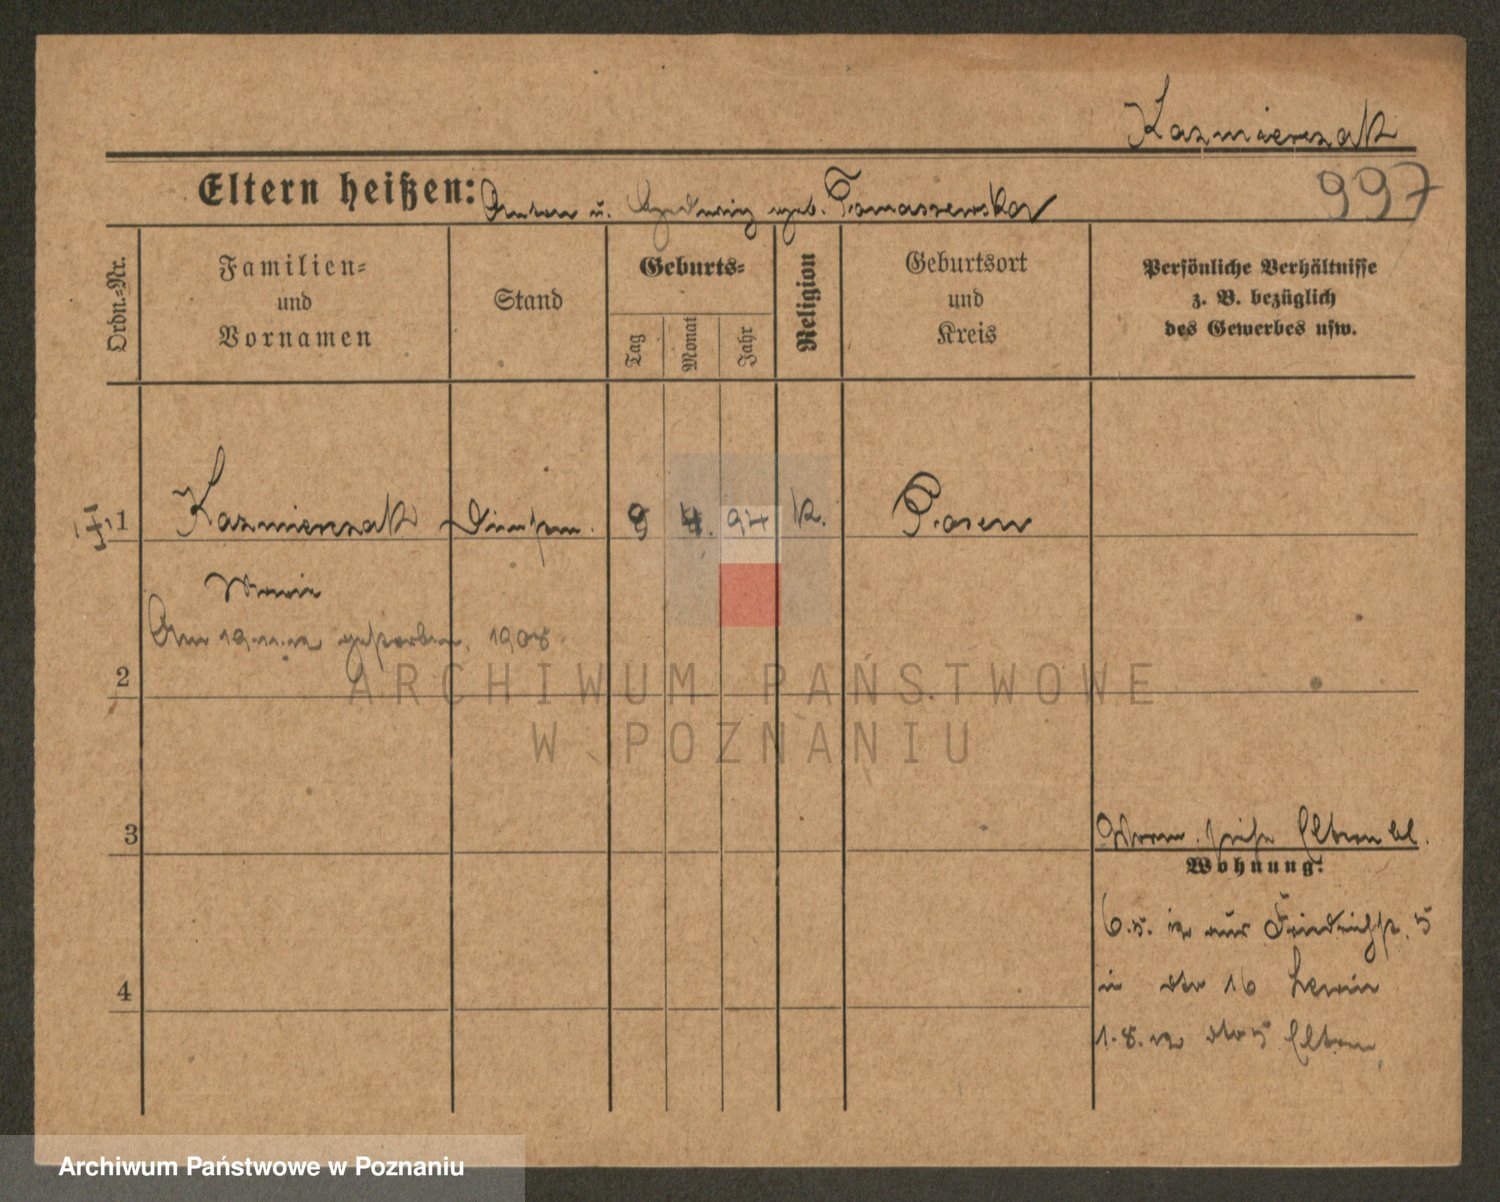 Kazmierczak
997
Eltern heißen: Anton u. Hedwig geb. Tomaszewska
Ordn.=Nr.
Familien=
und
Vornamen
Stand
Geburts=
Tag
Monat
Jahr
Religion
Geburtsort
und
Kreis
Persönliche Verhältnisse
z. B. bezüglich
des Gewerbes usw.
1 Kazmierczak 9 4. 97 K. Posen
Maria
Am gestorben. 1908
2
3
Eltern
Wohnung:
Friedrichstr. 5
4
in dto 16
1.8. dto 5 Eltern
ARCHIWUM PAŃSTWOWE
W POZNANIU
Archiwum Państwowe w Poznaniu